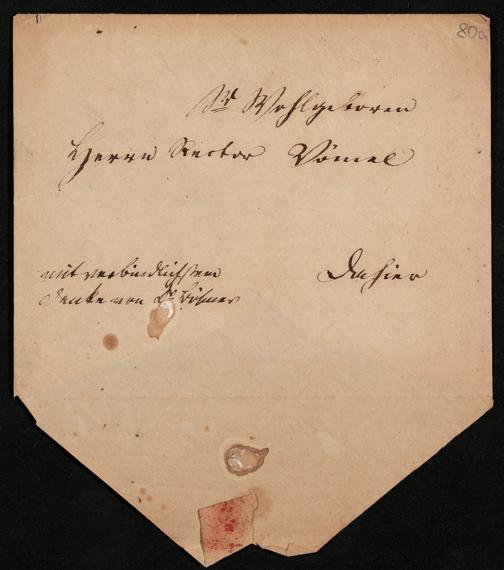 80a
Sr Wohlgeboren
Herrn Rector Vömel
mit verbindlichstem
Danke von Dr Böhmer
Dahier